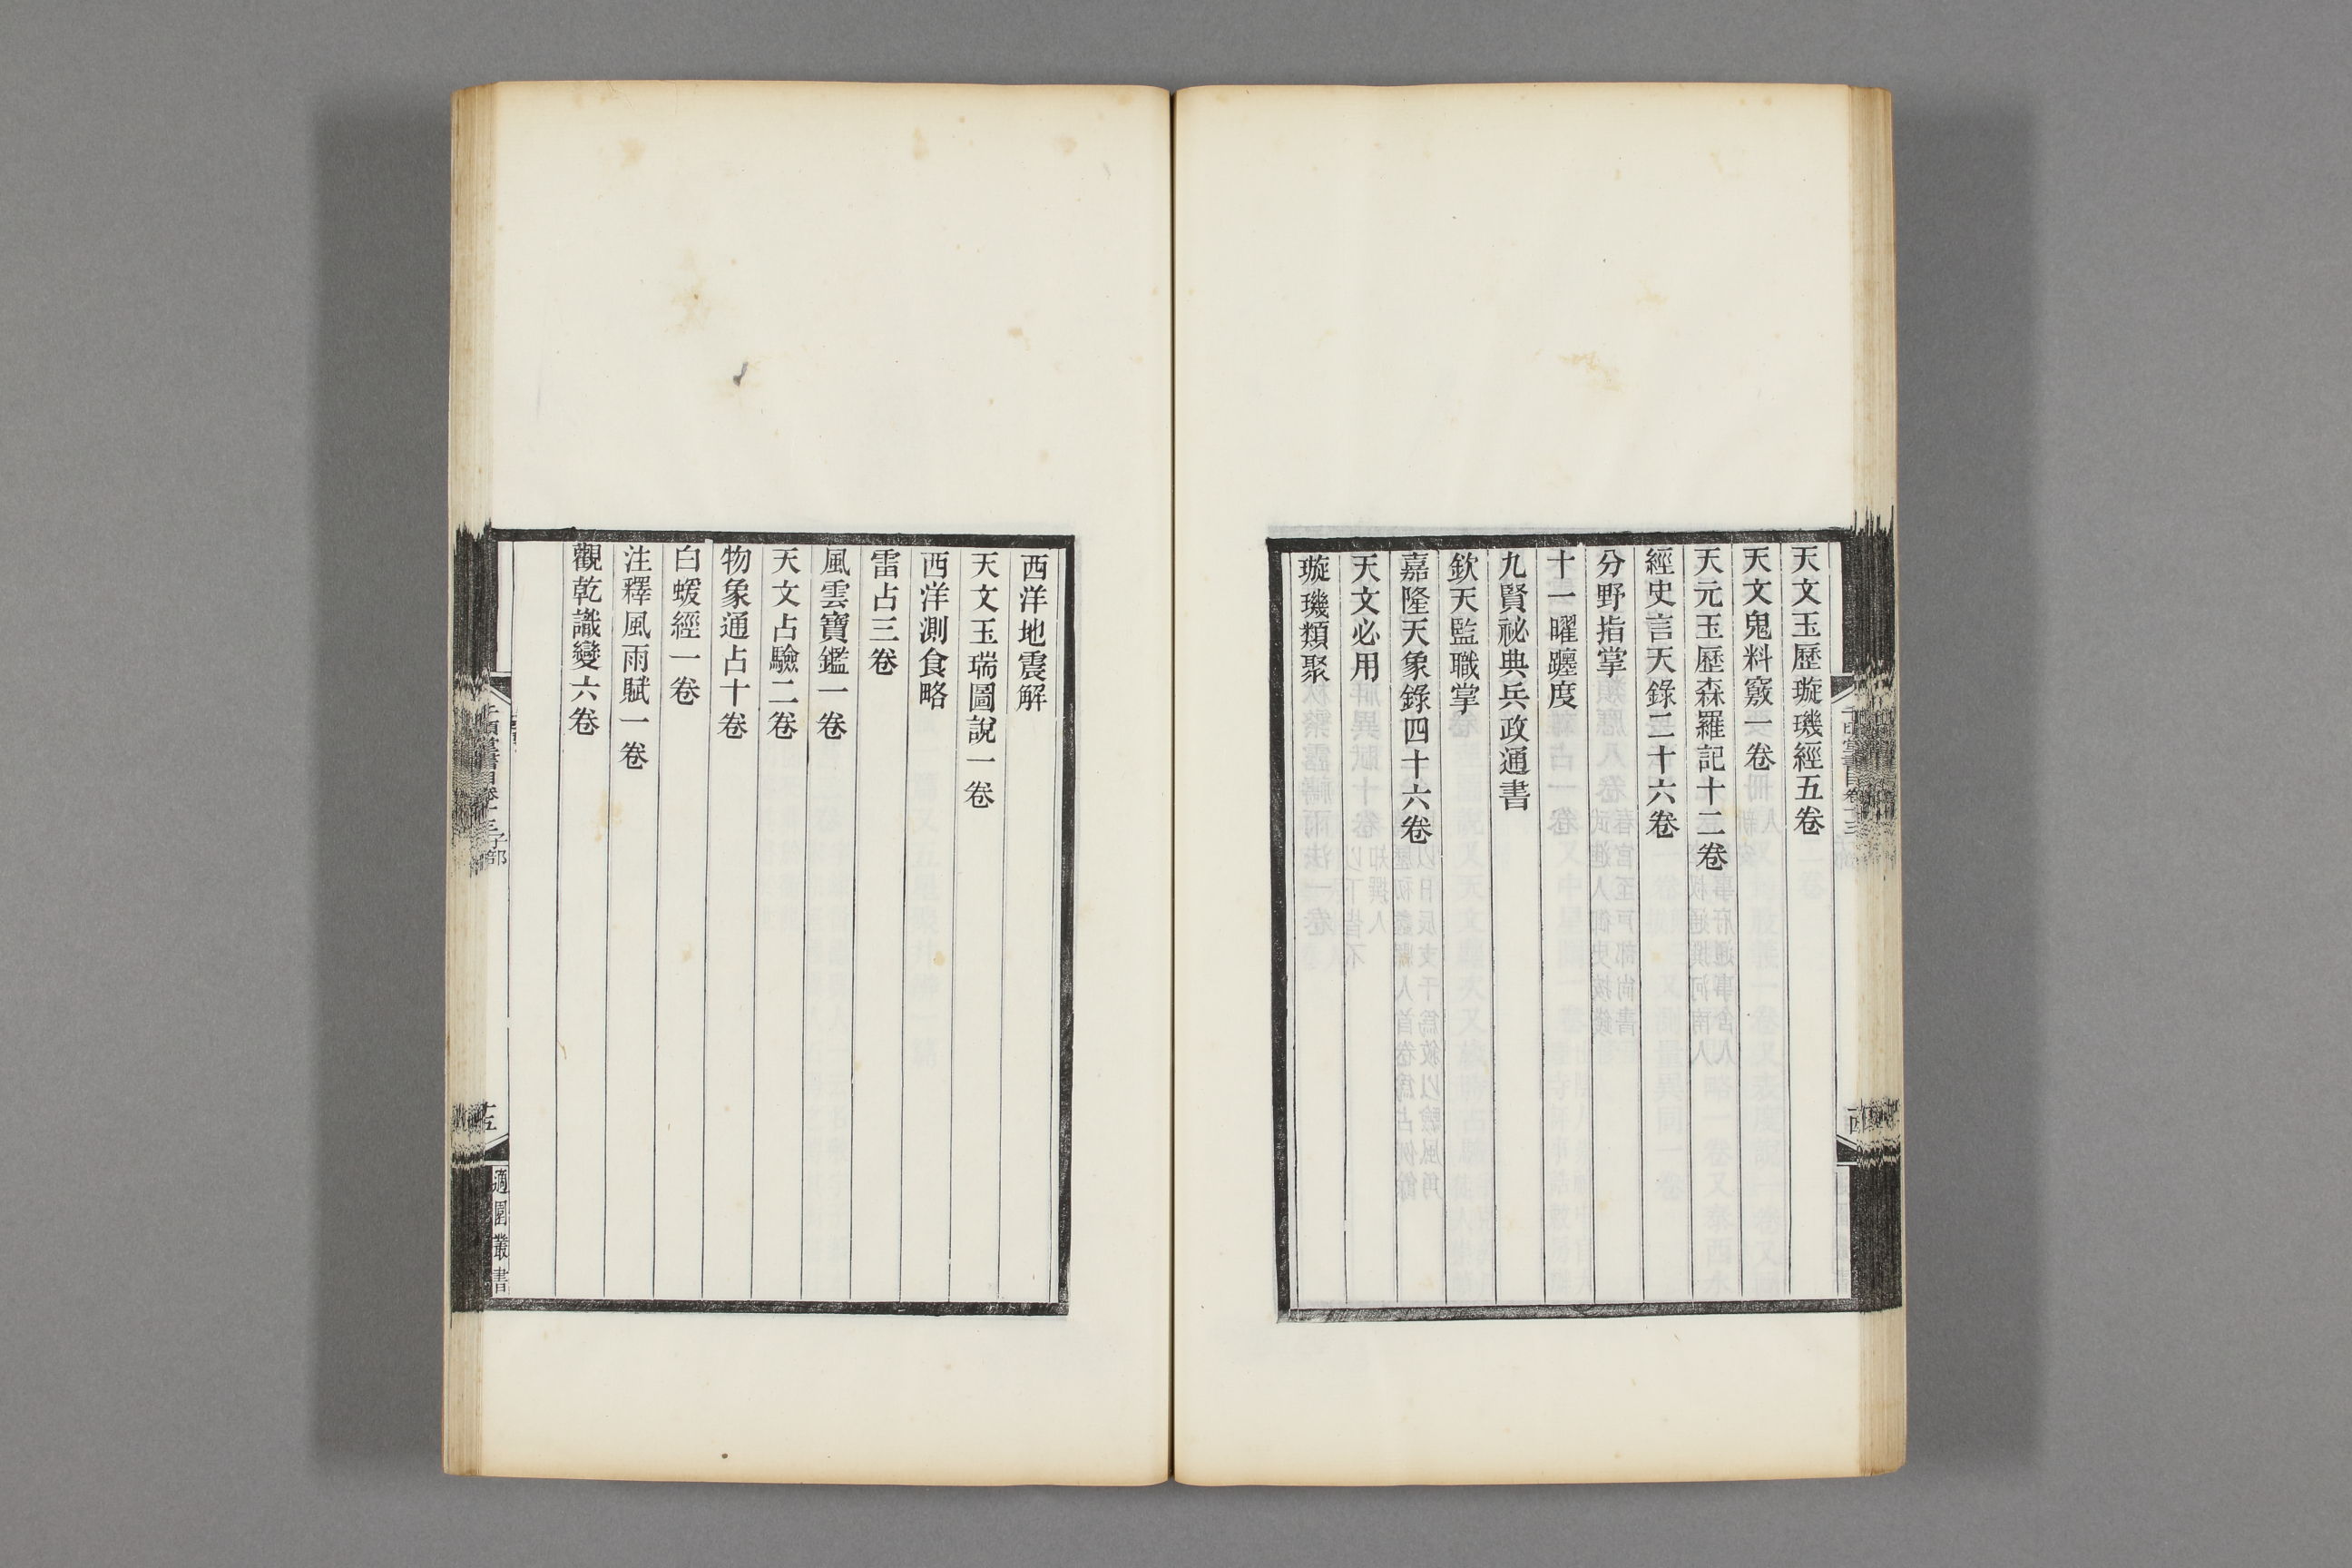 天文玉歷璇璣經五卷
天文鬼料竅一卷
天元玉歷森羅記十二卷
經史言天錄二十六卷
分野指掌
十一曜躔度
九賢祕典兵政通書
欽天監職掌
嘉隆天象錄四十六卷
天文必用
璇璣類聚
西洋地震解
天文玉瑞圖說一卷
西洋測食略
雷占三卷
風雲寶鑑一卷
天文占驗二卷
物象通占十卷
白蝯經一卷
注釋風雨賦一卷
觀乾識變六卷
千頃堂書目卷十三子部
十五
適園叢書